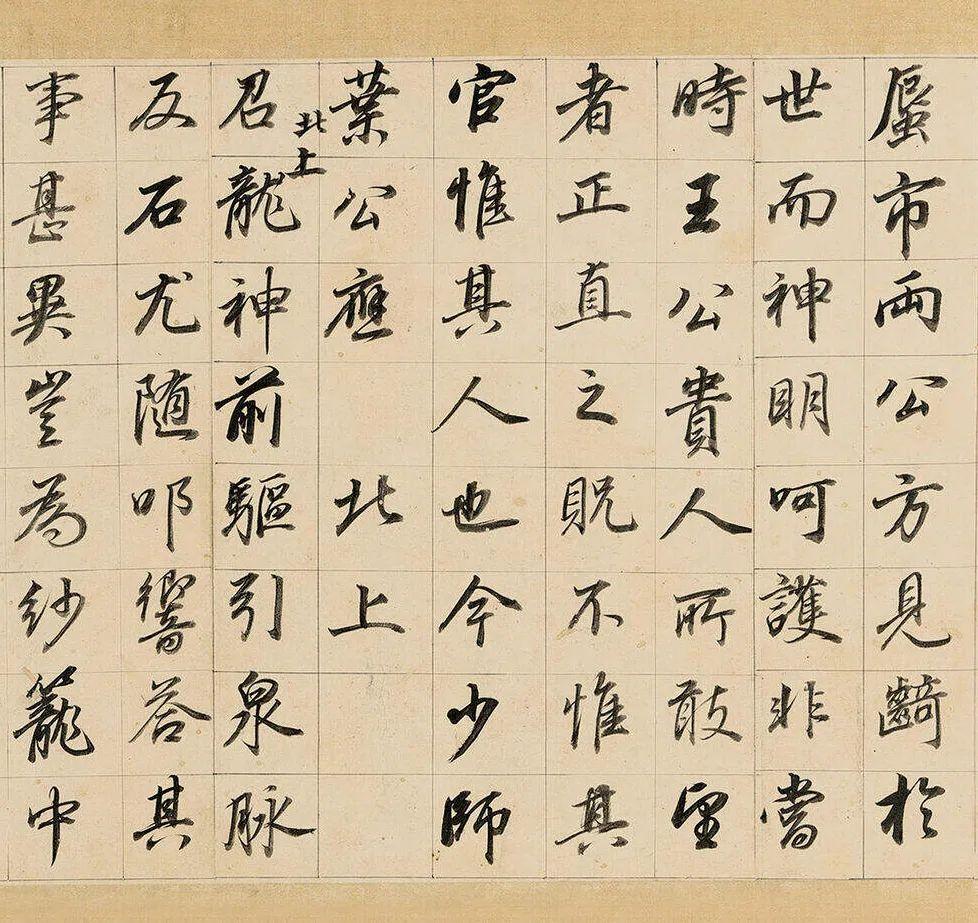 蜃市兩公方見齮於
世而神明呵護非當
時王公貴人所敢望
者正直之貺不惟其
官惟其人也今少師
葉公應 北上
北上
召龍神前驅引泉脉
反石尤随叩響答其
事甚異豈為紗籠中